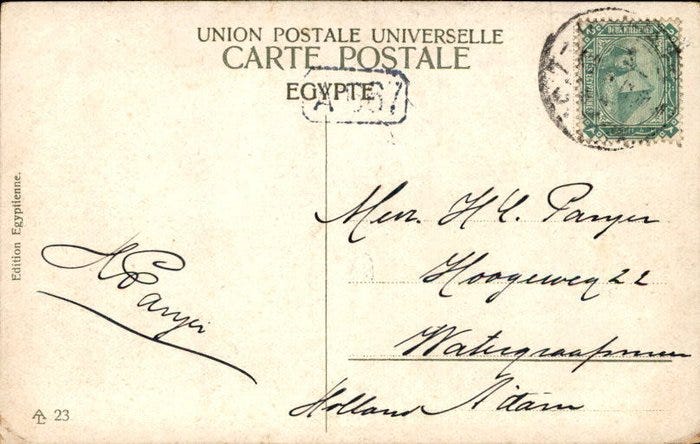 UNION POSTALE UNIVERSELLE
CARTE POSTALE
EGYPTE
Edition Egyptienne.
Mevr. H. C. Panjer
Hoogeweg 22
Watergraafsmeer
Holland A'dam
Panjer
23